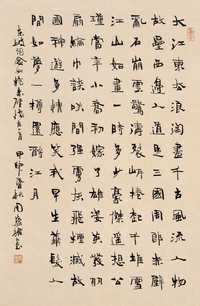 大江東去浪淘盡千古風流人物
故壘西邊人道是三國周郎赤壁
亂石崩雲驚濤裂岸捲起千堆雪
江山如畫一時多少豪傑遙想公
瑾當年小喬初嫁了雄姿英發羽
扇綸巾談笑間灰飛煙滅故
國神遊多情應笑我早生華髮人
間如夢一樽還酹江月 甲申
東坡詞念奴嬌赤壁懷古一首